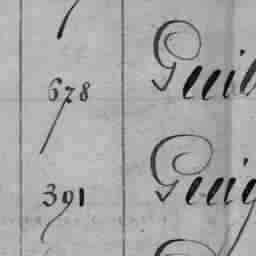 678 Guil
391 Guig